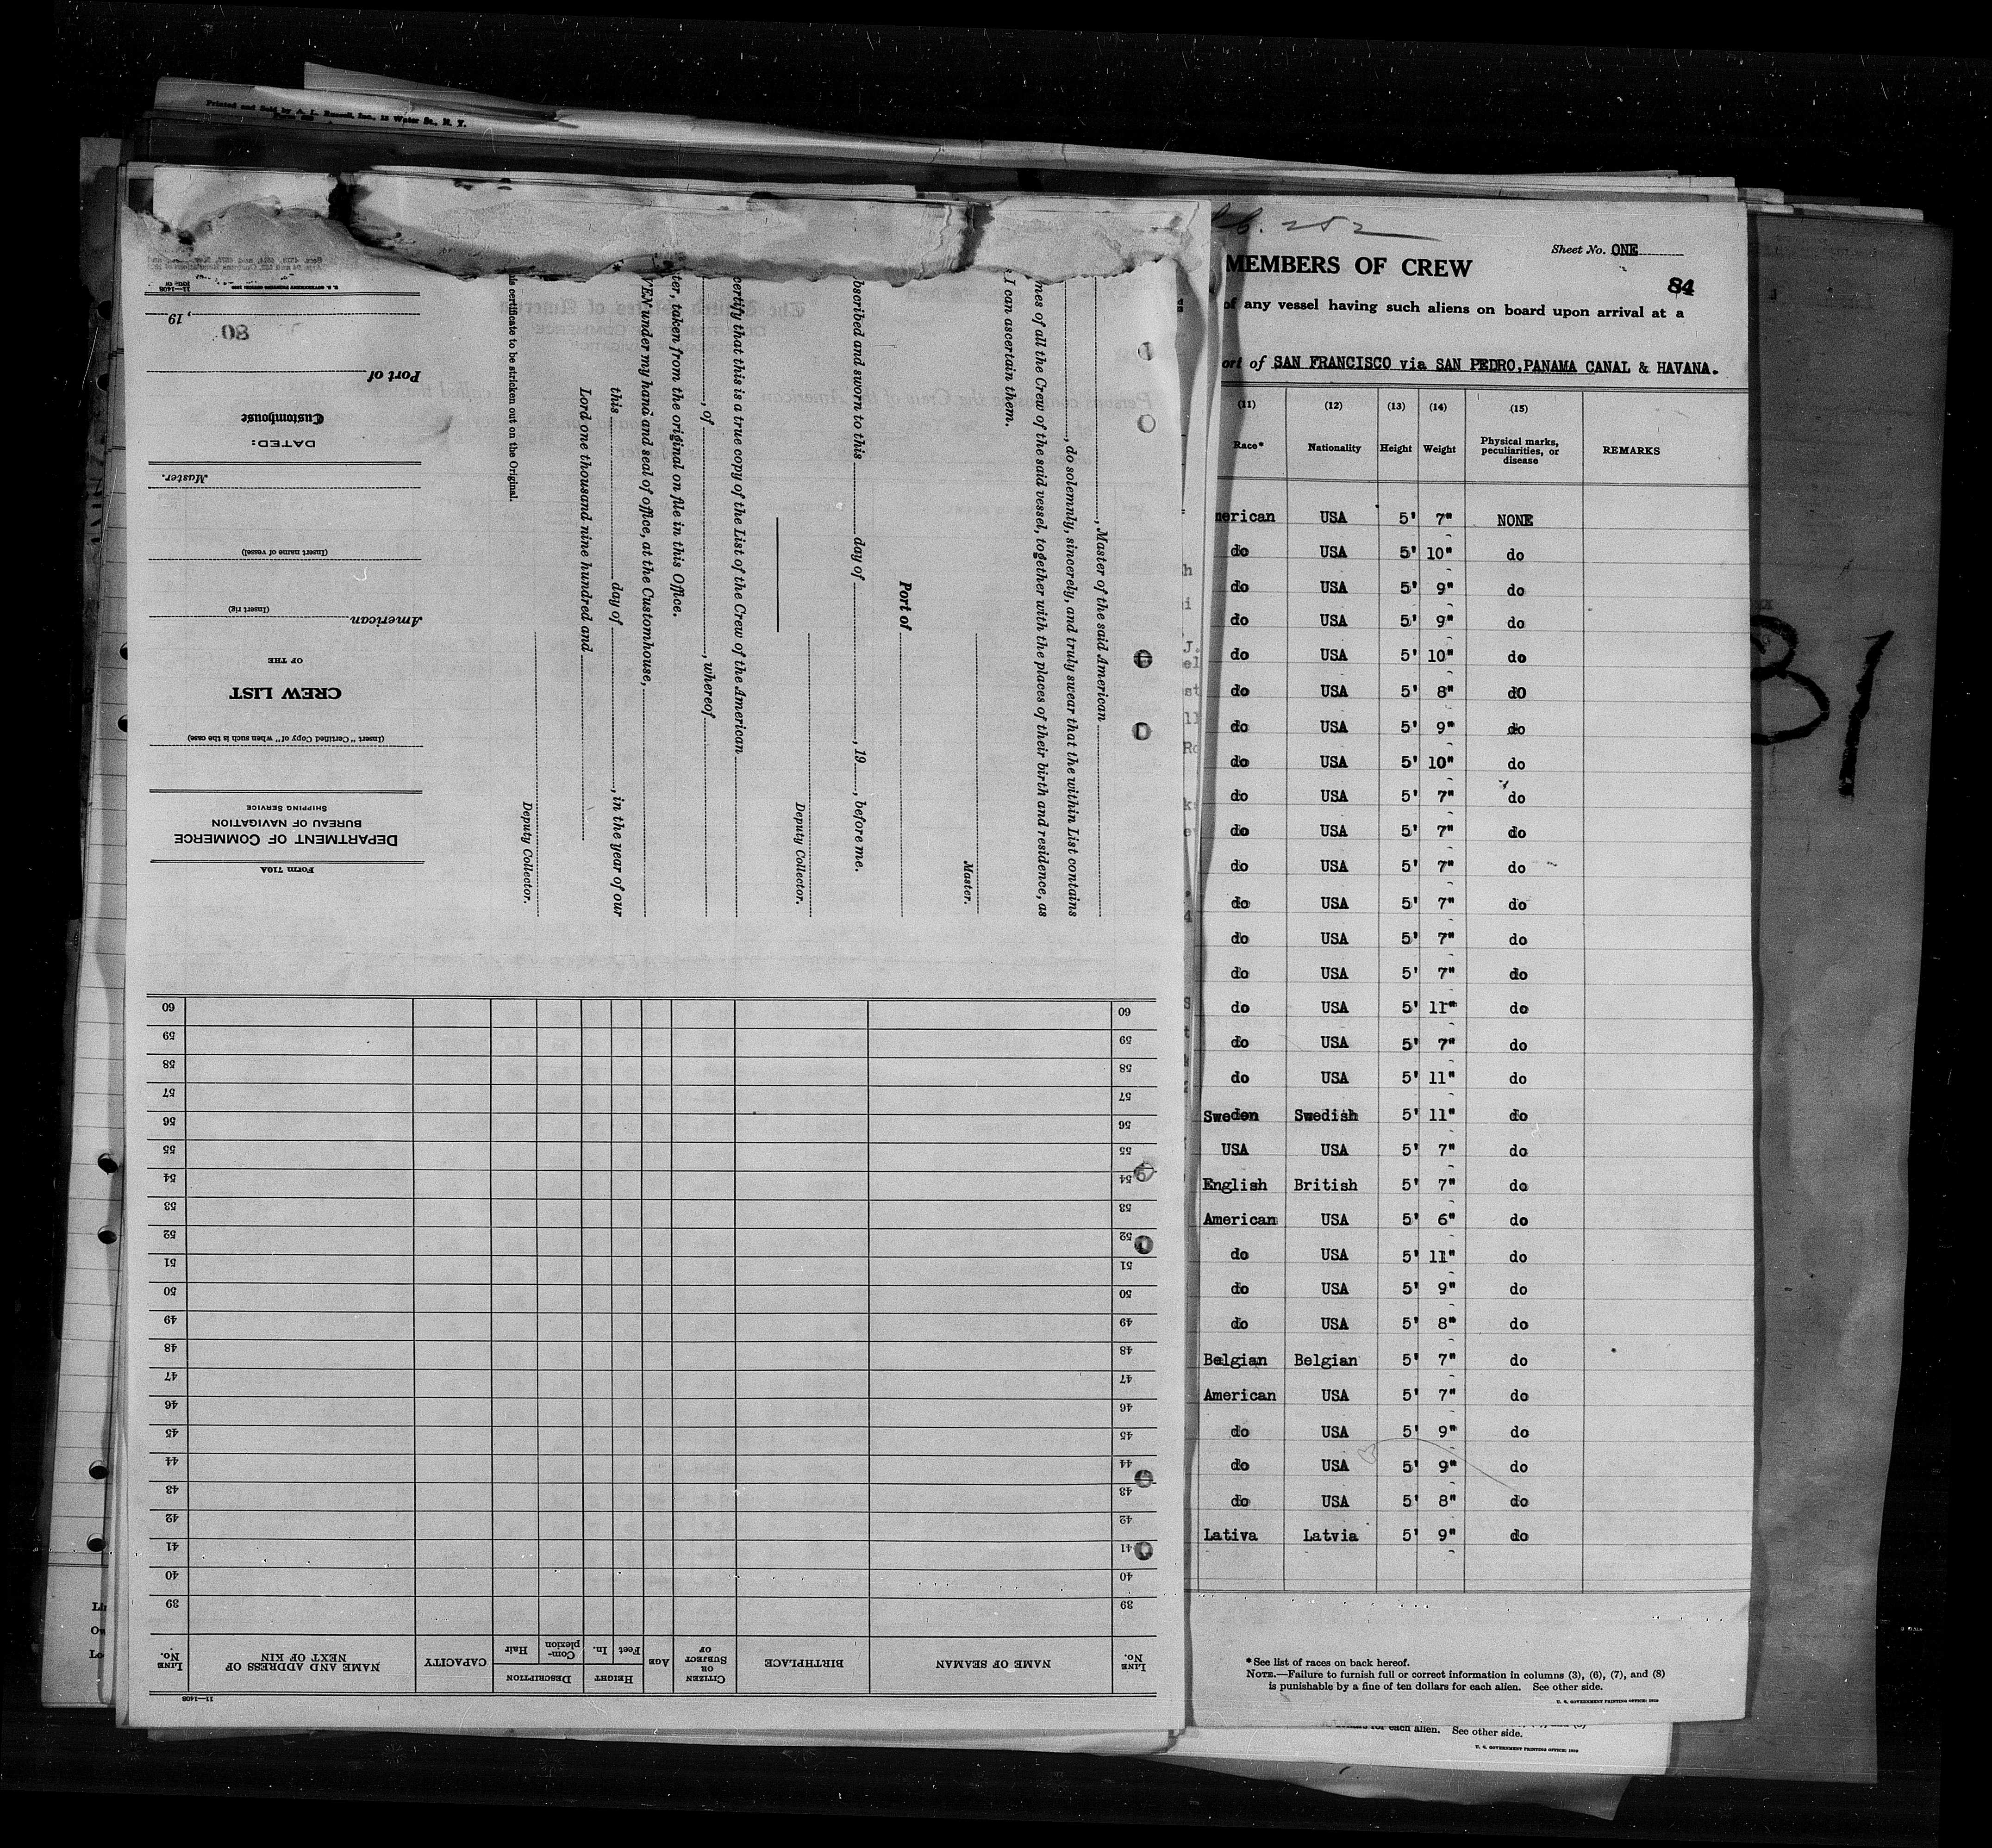 Printed and Sold by A. L. Russell, Inc., 12 Water St., N. Y.
Form 710A
DEPARTMENT OF COMMERCE
BUREAU OF NAVIGATION
SHIPPING SERVICE
(Insert "Certified Copy of" when such is the case)
CREW LIST
OF THE
American
(Insert rig)
(Insert name of vessel)
Master.
DATED:
Customhouse
Port of
80
, 19
11—1408
, Master of the said American
, do solemnly, sincerely, and truly swear that the within List contains
mes of all the Crew of the said vessel, together with the places of their birth and residence, as
I can ascertain them.
Master.
Port of
bscribed and sworn to this day of , 19 , before me.
Deputy Collector.
certify that this is a true copy of the List of the Crew of the American
, of , whereof
ter, taken from the original on file in this Office.
VEN under my hand and seal of office, at the Customhouse,
this day of , in the year of our
Lord one thousand nine hundred and
Deputy Collector.
is certificate to be stricken out on the Original.
LINE No. NAME OF SEAMAN BIRTHPLACE CITIZEN OR SUBJECT OF AGE HEIGHT Feet In. DESCRIPTION Complexion Hair CAPACITY NAME AND ADDRESS OF NEXT OF KIN LINE No.
39 39
40 40
41 41
42 42
43 43
44 44
45 45
46 46
47 47
48 48
49 49
50 50
51 51
52 52
53 53
54 54
55 55
56 56
57 57
58 58
59 59
60 60
11—1408
252
Sheet No. ONE
MEMBERS OF CREW
84
of any vessel having such aliens on board upon arrival at a
ort of SAN FRANCISCO via SAN PEDRO,PANAMA CANAL & HAVANA.
(11) (12) (13) (14) (15)
Race* Nationality Height Weight Physical marks, peculiarities, or disease REMARKS
merican USA 5' 7" NONE
do USA 5' 10" do
do USA 5' 9" do
do USA 5' 9" do
do USA 5' 10" do
do USA 5' 8" dO
do USA 5' 9" do
do USA 5' 10" do
do USA 5' 7" do
do USA 5' 7" do
do USA 5' 7" do
do USA 5' 7" do
do USA 5' 7" do
do USA 5' 7" do
do USA 5' 11" do
do USA 5' 7" do
do USA 5' 11" do
Sweden Swedish 5' 11" do
USA USA 5' 7" do
English British 5' 7" do
American USA 5' 6" do
do USA 5' 11" do
do USA 5' 9" do
do USA 5' 8" do
Belgian Belgian 5' 7" do
American USA 5' 7" do
do USA 5' 9" do
do USA 5' 9" do
do USA 5' 8" do
Lativa Latvia 5' 9" do
*See list of races on back hereof.
NOTE.—Failure to furnish full or correct information in columns (3), (6), (7), and (8)
is punishable by a fine of ten dollars for each alien. See other side.
U. S. GOVERNMENT PRINTING OFFICE
for each alien. See other side.
U. S. GOVERNMENT PRINTING OFFICE
81